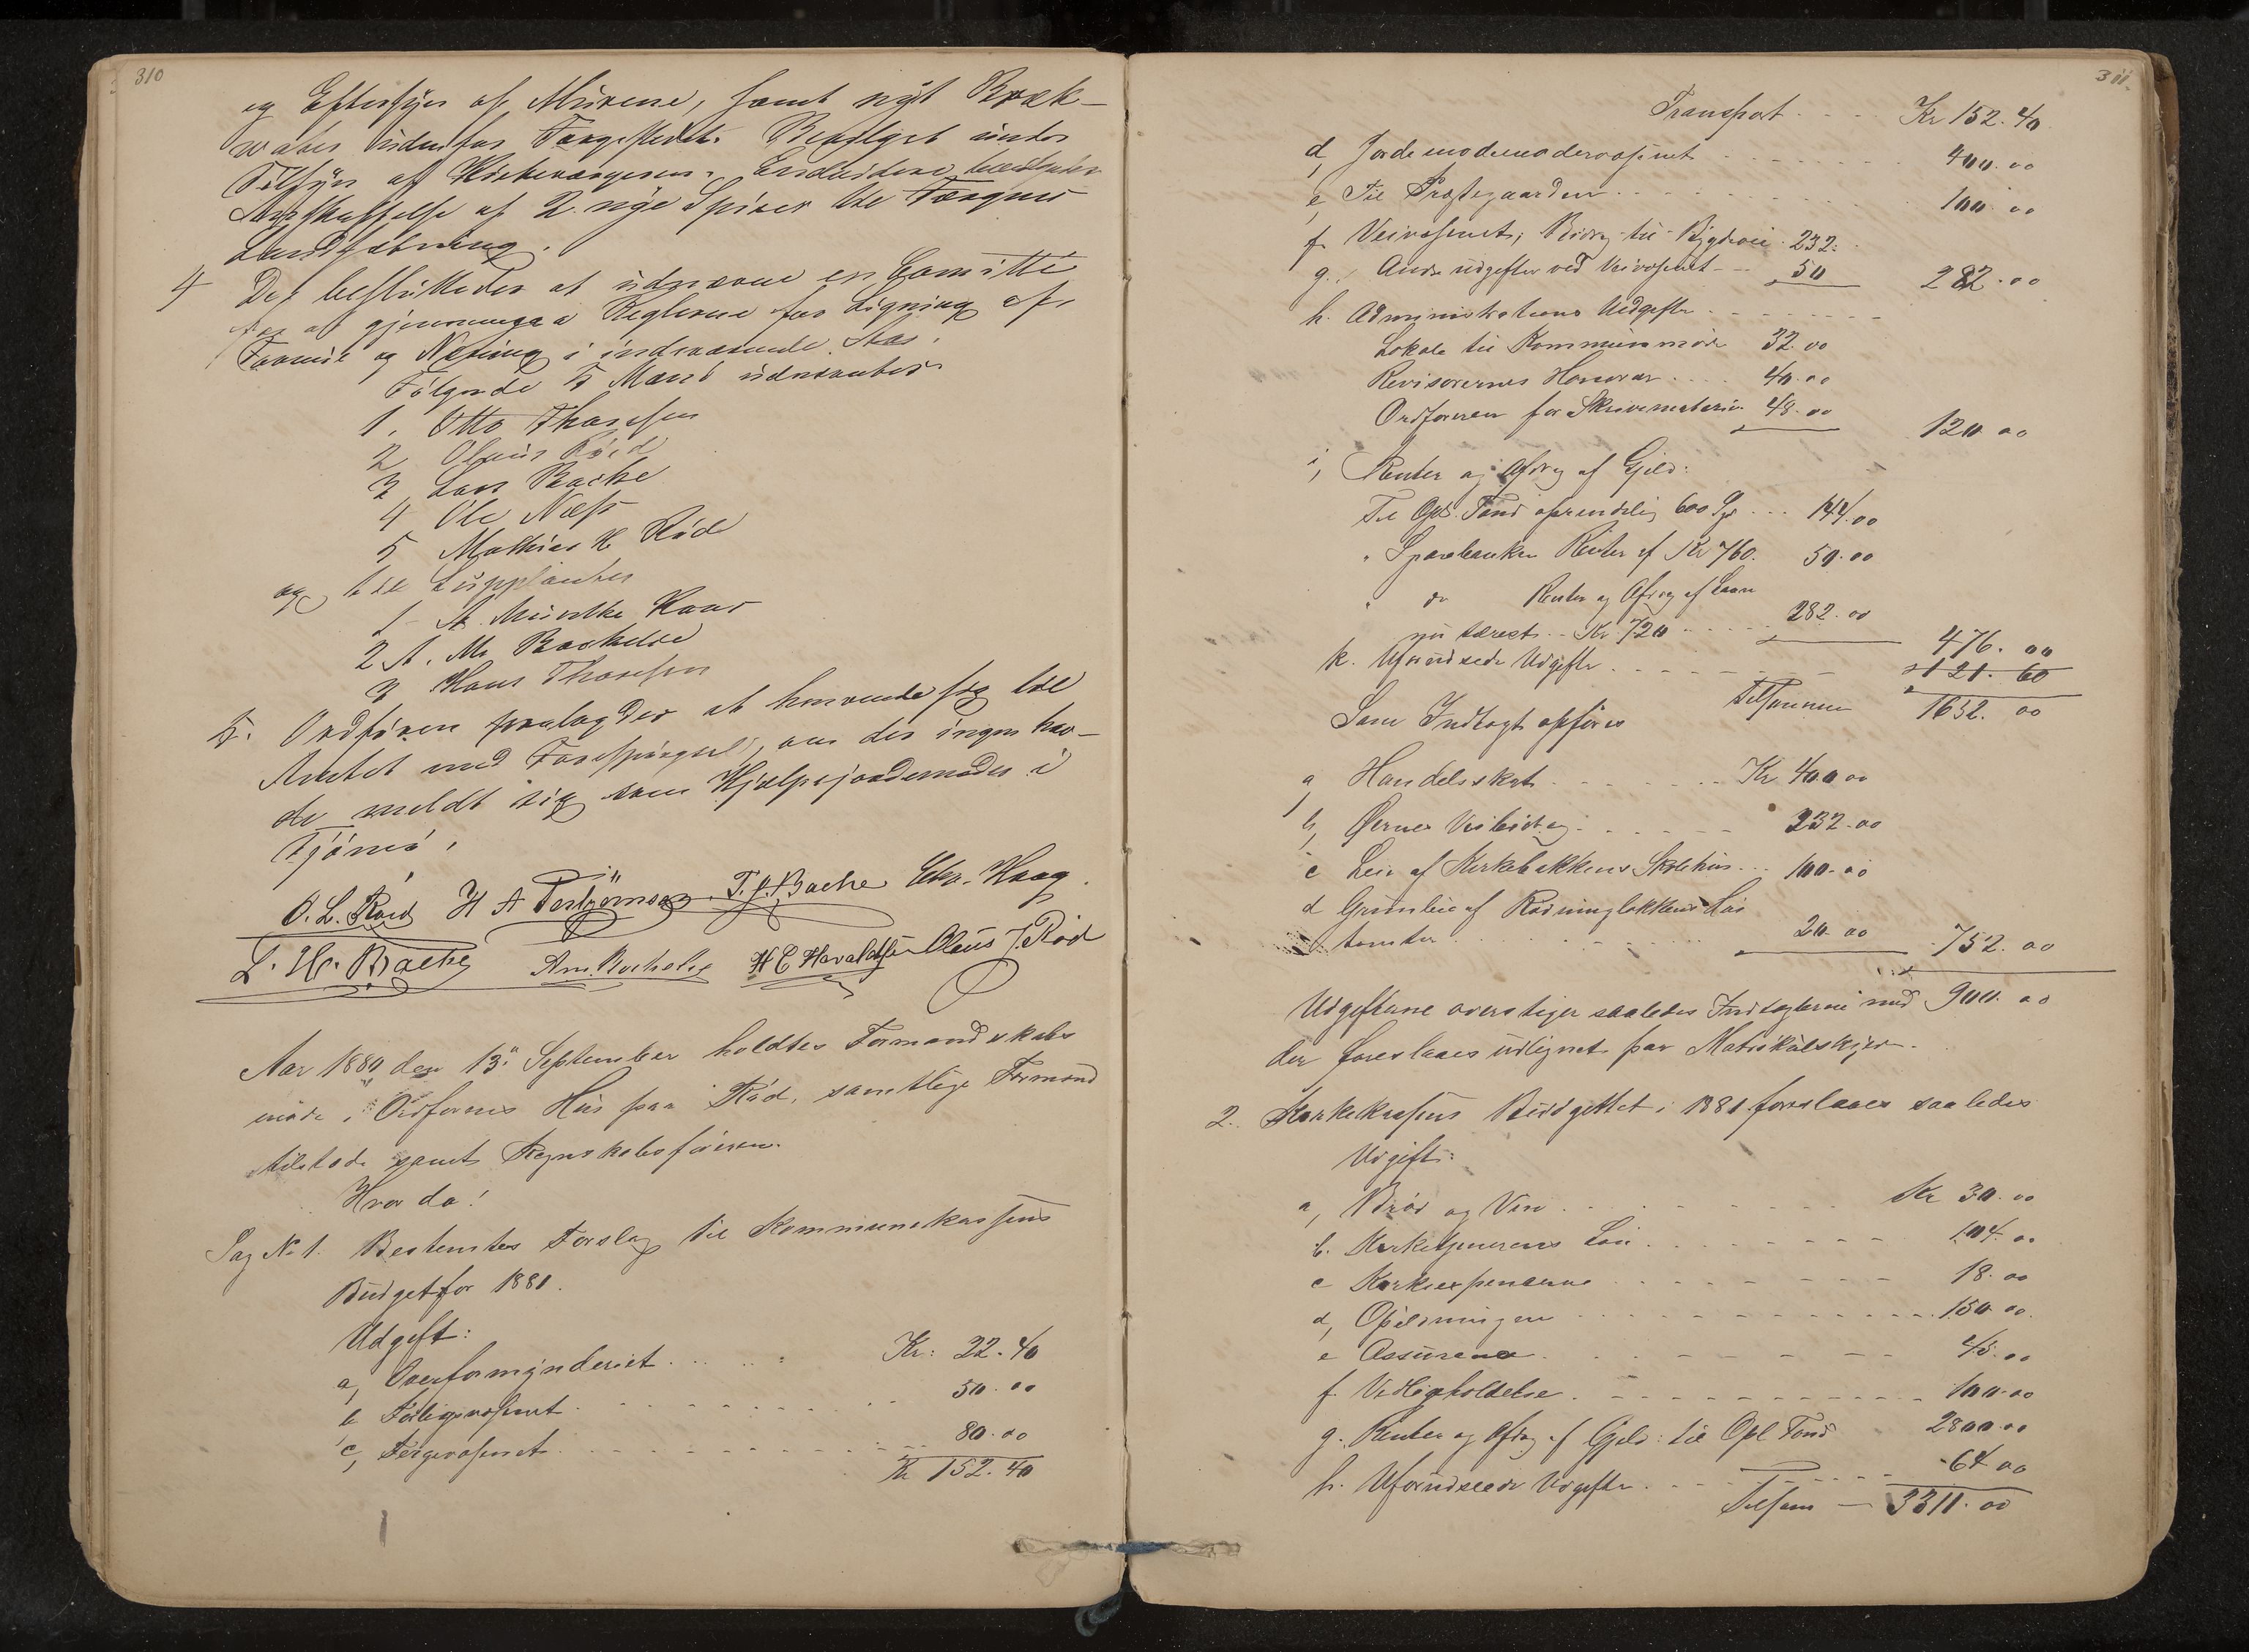 310
og Eftersyn af Murene, samt nyt Ræk-
værk udenfor Færgestedet. Bevilget under
Tilsyn af Kirkeværgeren. Endvidere
Anskaffelse af 2 nye Spirer til Færgens
Landsætning.
4 Det besluttedes at udnævne en Comitte
for at gjennemgaa Reglerne for Ligning af
Formue og Næring i indeværende Aar.
Følgende 5 Mænd udnævntes
1. Otto Thoresen
2 Olaus Röd
3 Lars Bache
4 Ole Næss
5 Mathias H Röd
og til Supplanter
1 A. Munthe Kaas
2 A. M. Bockelie
3 Hans Thoresen
5. Ordføren paalagdes at henvende sig til
Amtet med Forespørgsel, om der ingen hav-
de meldt sig som Hjælpejordemoder i
Tjömö.
O. L. Röed H A Torbjörnsen T. J. Bache Chr. Haag.
L. H. Bache Am. Bockelie H E Haraldsen Olaus J. Röd
Aar 1880 den 13de September holdtes Formandskabs
møde i Ordførerens Hus paa Röd, samtlige Formænd
tilstede samt Regnskabsføreren.
Hvor da!
Sag No 1. Bestemtes Forslag til Kommunekassens
Budget for 1881.
Udgift:
a, Overformynderiet Kr: 22.40
b Forligsvæsenet 50.00
c, Færgevæsenet 80.00
Kr 152.40
311.
Transport Kr 152.40
d, Jordemodervæsenet 400.00
e, Til Præstegaarden 100.00
f. Veivæsenet, Bidrag til Bygdevei 232.
g. Andre udgifter ved Veivæsenet 50 282.00
h. Administrations Udgifter
Lokale til Kommunemøde 32.00
Revisorernes Honorar 40.00
Ordføreren for Skrivematerial 48.00 120.00
i, Renter og Afdrag af Gjeld:
Til Opl. Fond oprindelig 600 Spd 144.00
" Sparebanken Renter af Kr 760. 50.00
" do Renter og Afdrag af Laan
nu værest Kr 720 282.00 476.00
k. Uforudseede Udgifter 121.60
Tilsammen 1652.00
Som Indtægt opføres
a, Handelsskat Kr 400.00
b, Øernes Veibidrag 232.00
c Leie af Kirkebakkens Skolehus 100.00
d Grundleie af Rødninglökkens Hus
tomter 20.00 752.00
Udgifterne overstiger saaledes Indtægterne med 900.00
der foreslaaes udlignet paa Matrikulskyld.
2. Kirkekassens Budgettet i 1881 foreslaaes saaledes
Udgift:
a, Brød og Vin Kr 30.00
b. Kirketjenerens Løn 104.00
c Kirkesangerne 18.00
d, Opildningen 150.00
e Assurance 45.00
f. Vedligeholdelse 100.00
g. Renter og Afdrag af Gjeld: til Opl Fond 2800.00
h. Uforudseede Udgifter 64.00
Tilsam 3311.00